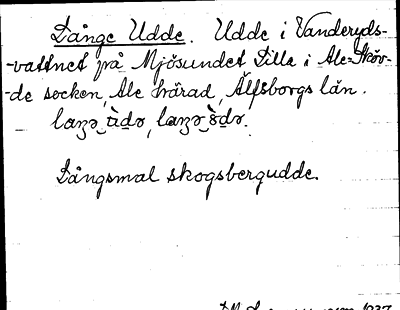 Långe Udde. Udde i Vanderyds-
-vattnet på Mjösundet Lilla i Ale-Sköv-
-de socken, Ale härad, Älfsborgs län.
Långsmal skogsbergudde.
1937